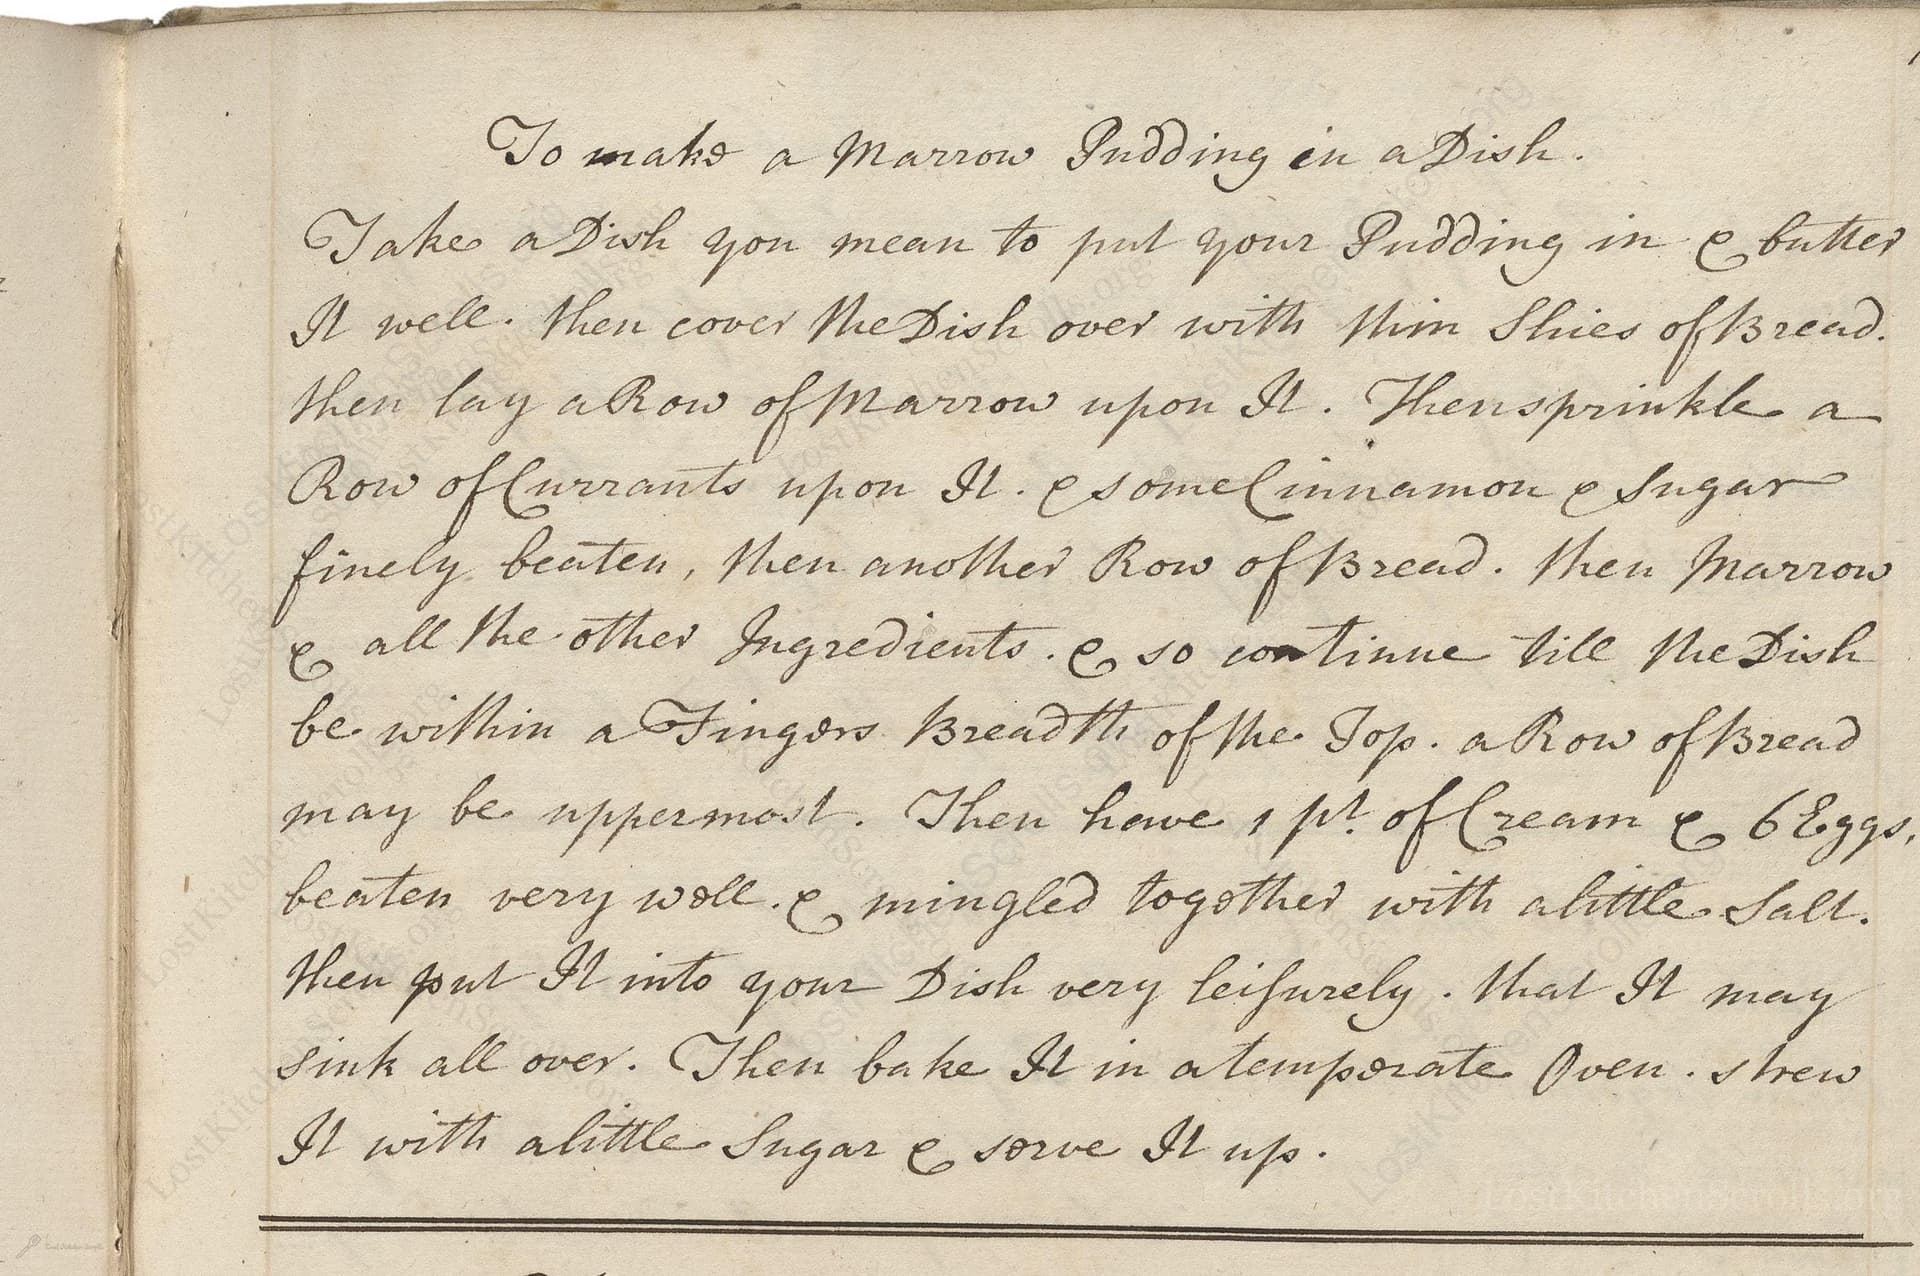 To make a Marrow Pudding in a Dish.
Take a Dish you mean to put your Pudding in & butter
It well. then cover the Dish over with thin Slices of Bread.
then lay a Row of Marrow upon It. Then sprinkle a
Row of Currants upon It. & some Cinnamon & Sugar
finely beaten, then another Row of Bread. then Marrow
& all the other Ingredients. & so continue till the Dish
be within a Fingers Breadth of the Top. a Row of Bread
may be uppermost. Then have 1 pt. of Cream & 6 Eggs,
beaten very well. & mingled together with a little Salt.
then put It into your Dish very leisurely. that It may
sink all over. Then bake It in a temperate Oven. strew
It with a little Sugar & serve It up.
LostKitchenScrolls.org